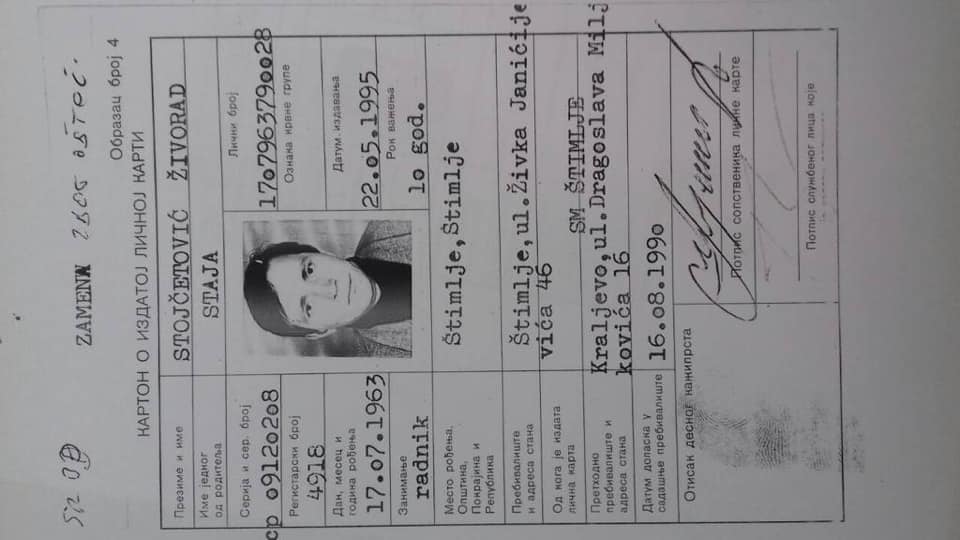 ZAMENA ZBOG OŠTEĆ.
Образац број 4
КАРТОН О ИЗДАТОЈ ЛИЧНОЈ КАРТИ
Презиме и име
STOJČETOVIĆ ŽIVORAD
Име једног
од родитеља
STAJA
Серија и сер. број
ср 0912028
Регистарски број
4918
Дан, месец и
година рођења
17.07.1963
Занимање
radnik
Лични број
1707963790028
Ознака крвне групе
Датум издавања
22.05.1995
Рок важења
10 god.
Место рођења,
Општина,
Покрајина и
Република
Štimlje,Štimlje
Пребивалиште
и адреса стана
Štimlje,ul.Živka Janićije
vića 46
Од кога је издата
лична карта
SM ŠTIMLJE
Претходно
пребивалиште и
адреса стана
Kraljevo,ul.Dragoslava Milj
kovića 16
Датум доласка у
садашње пребивалиште
16.08.1990
Отисак десног кажипрста
Потпис сопственика личне карте
Потпис службеног лица које